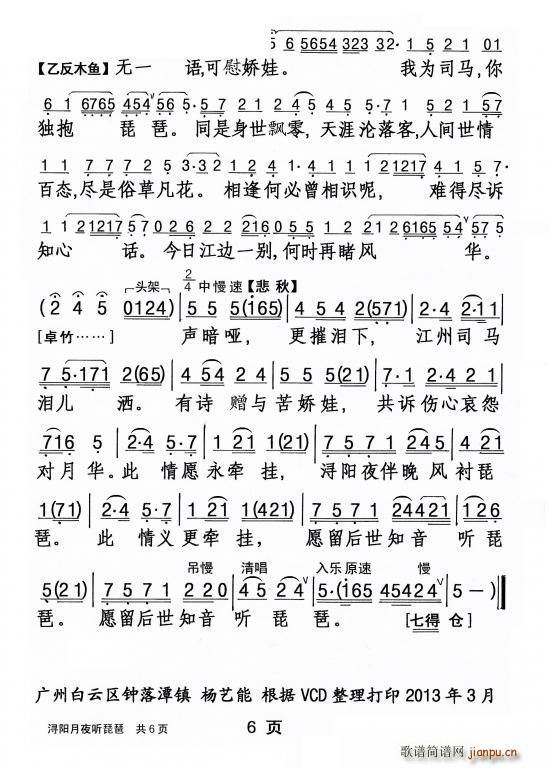 5 6 5654 323 32· 1 5 2 1 01
【乙反木鱼】无一 语,可慰娇娃。 我为司马,你
6 1 6765 454 56 5·57 21 2·1 7
独抱 琵琶。同是身世飘零,天涯沦落客,人间世情
百态,尽是俗草凡花。相逢何必曾相识呢, 难得尽诉
知心 话。今日江边一别,何时再睹风 华。
┌头架┐ 2/4 中慢速【悲秋】
(2 4 5 0124) | 5 5 5 (165) | 4 5 4 2(571) | 2·4 2·11 |
[卓竹……] 声暗哑, 更摧泪下, 江州司马
7 5·171 2(65) | 5·5 2 4 5 | 5 5(21) | 7·1 2·4 2 1 |
泪儿 洒。有诗赠与苦娇娃, 共诉伤心哀怨
716 5 | 2·4 5·7 | 1 21 1 21 | 7 5 7 1 2421 |
对月华。此 情愿永牵挂, 浔阳夜伴晚风衬琵
1(71) 5·7 | 2·4 5·7 | 1 21 1(421) | 7 5 7 1 24421 | 126
琶。 此 情义更牵挂, 愿留后世知音 听琵
吊慢 清唱 入乐原速 慢
5(21) | 7 5 7 1 220 | 245 24 | 5·(165 45424 | 5 - )
琶。 愿留后世知音 听琵 琶。 [七得 仓]
广州白云区钟落潭镇 杨艺能 根据VCD整理打印2013年3月
浔阳月夜听琵琶 共6页 6 页
歌谱简谱网
www.jianpu.cn